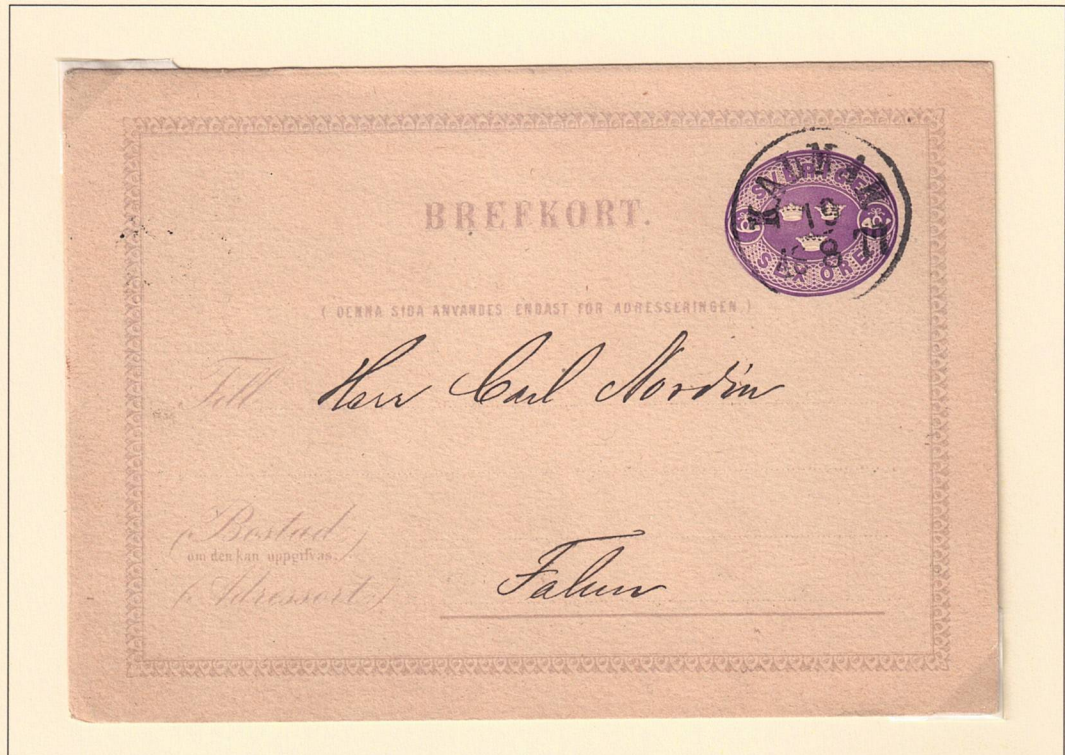 BREFKORT.
KALMAR
19
8
SEX ÖRE
( DENNA SIDA ANVANDES ENDAST FÖR ADRESSERINGEN )
Till Herr Carl Nordin
( Bostad )
om den kan uppgifvas.
( Adressort ) Falun